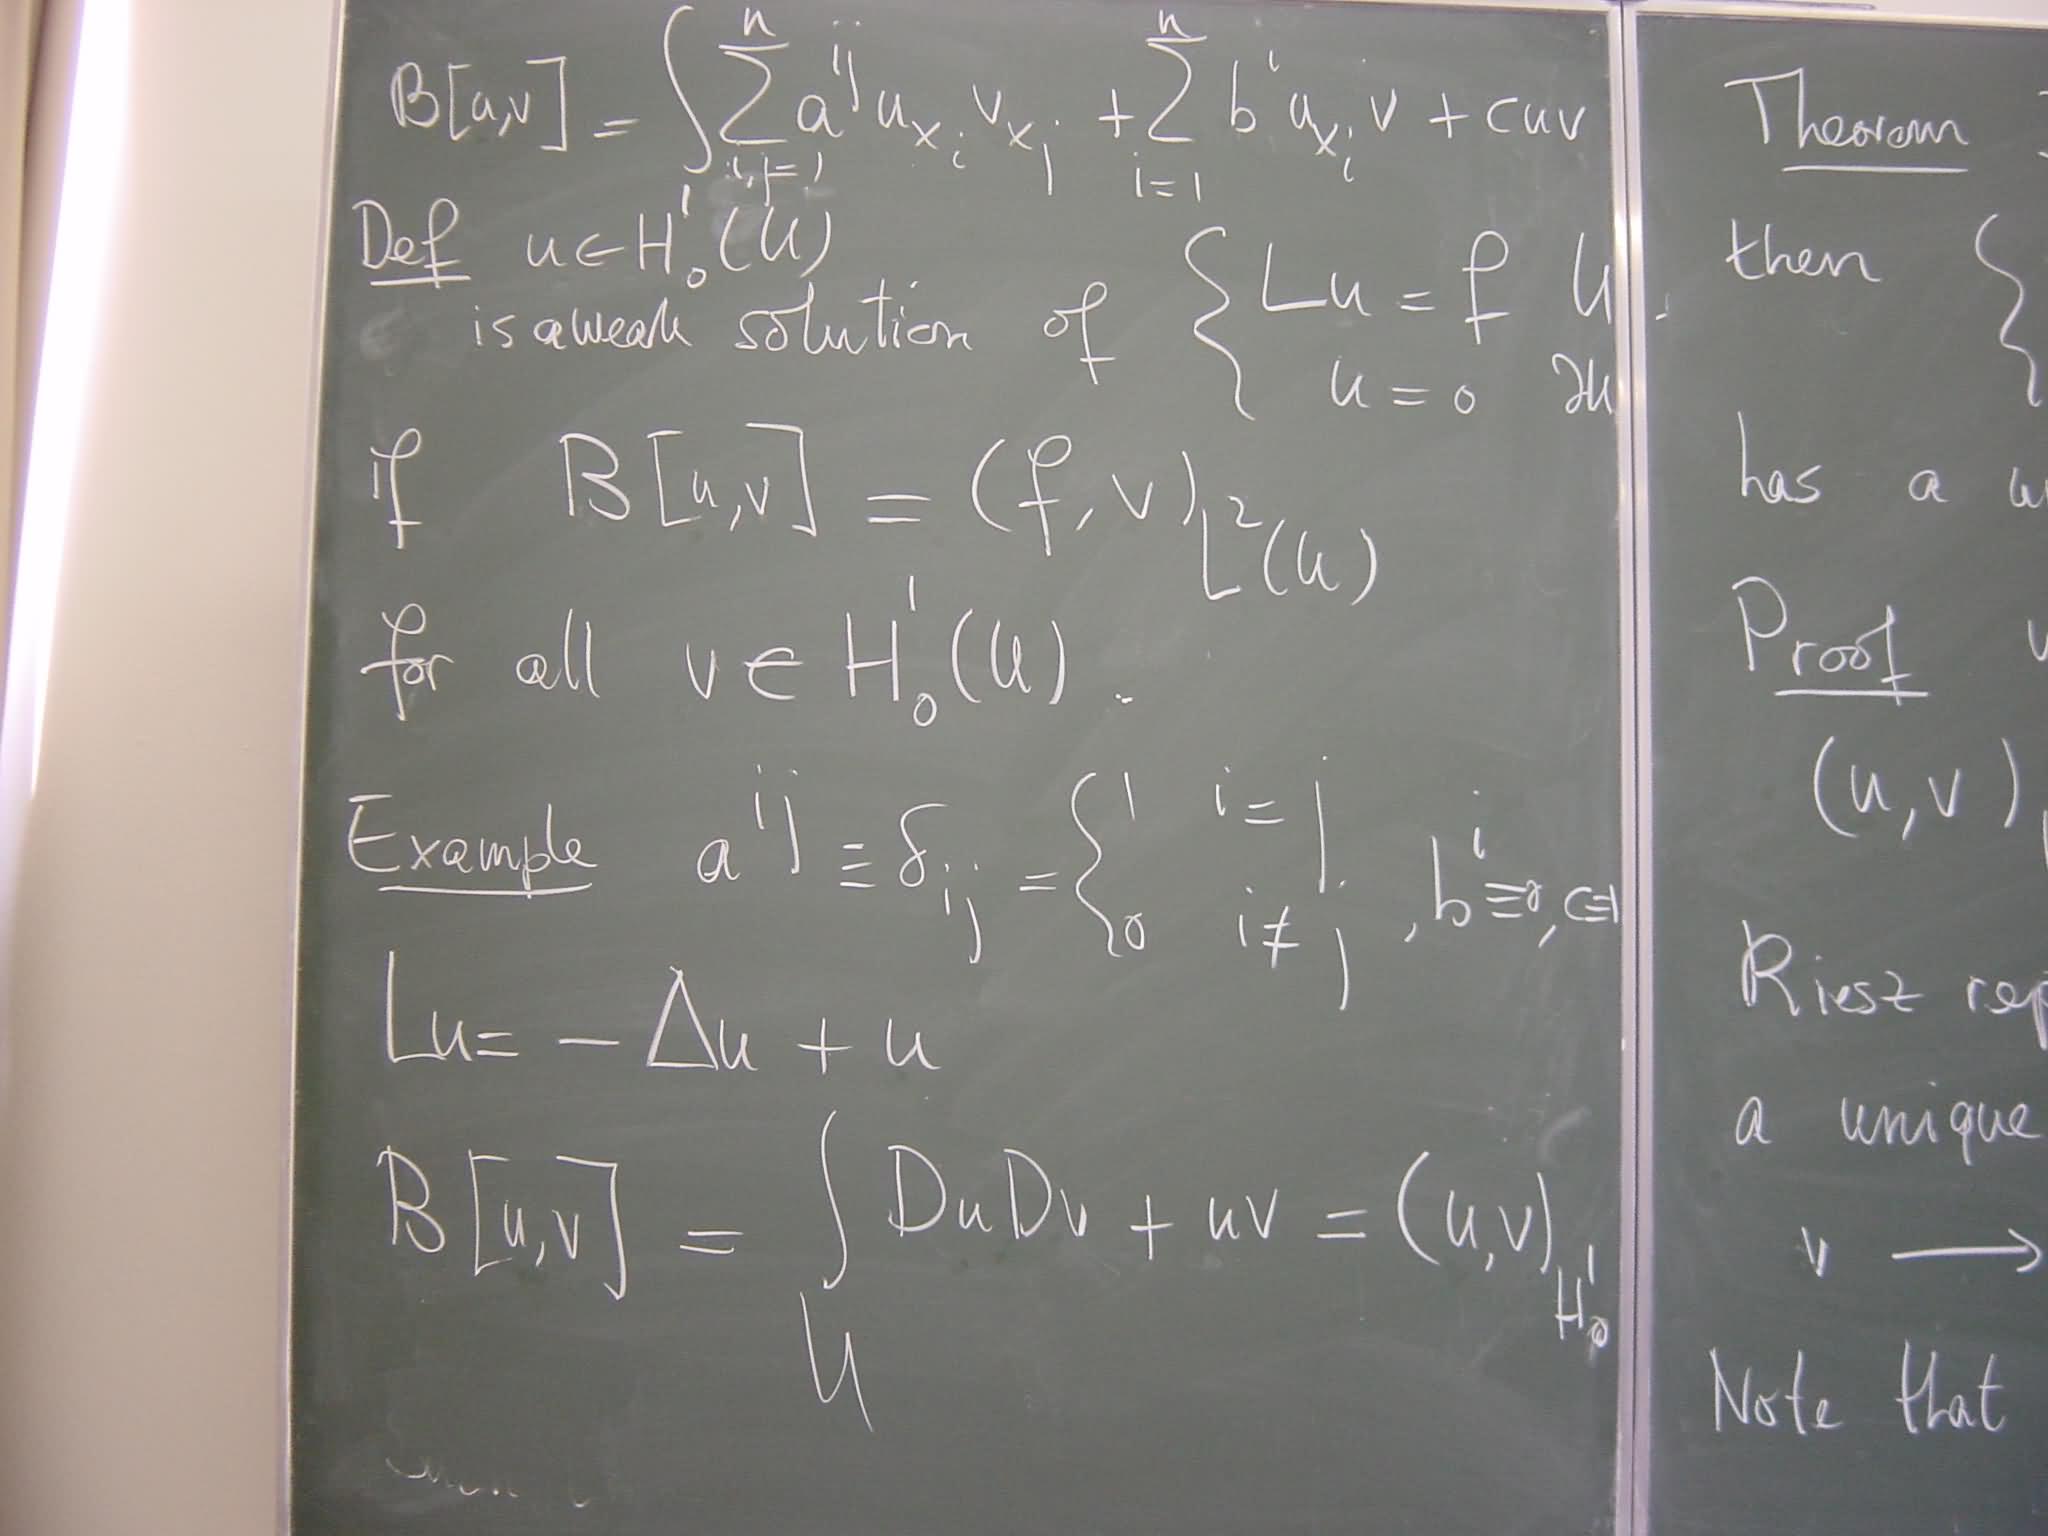 B[u,v] = ∫ Σ_{i,j=1}^{n} a^{ij} u_{x_i} v_{x_j} + Σ_{i=1}^{n} b^i u_{x_i} v + cuv
Def u ∈ H_0^1(U)
is a weak solution of { Lu = f U
u = 0 ∂U
if B[u,v] = (f,v)_{L^2(U)}
for all v ∈ H_0^1(U).
Example a^{ij} ≡ δ_{ij} = { 1 i=j
0 i≠j , b^i ≡ 0, c≡1
Lu = -Δu + u
B[u,v] = ∫_U DuDv + uv = (u,v)_{H_0^1}
Theorem
then {
has a
Proof
(u,v)
Riesz rep
a unique
v →
Note that